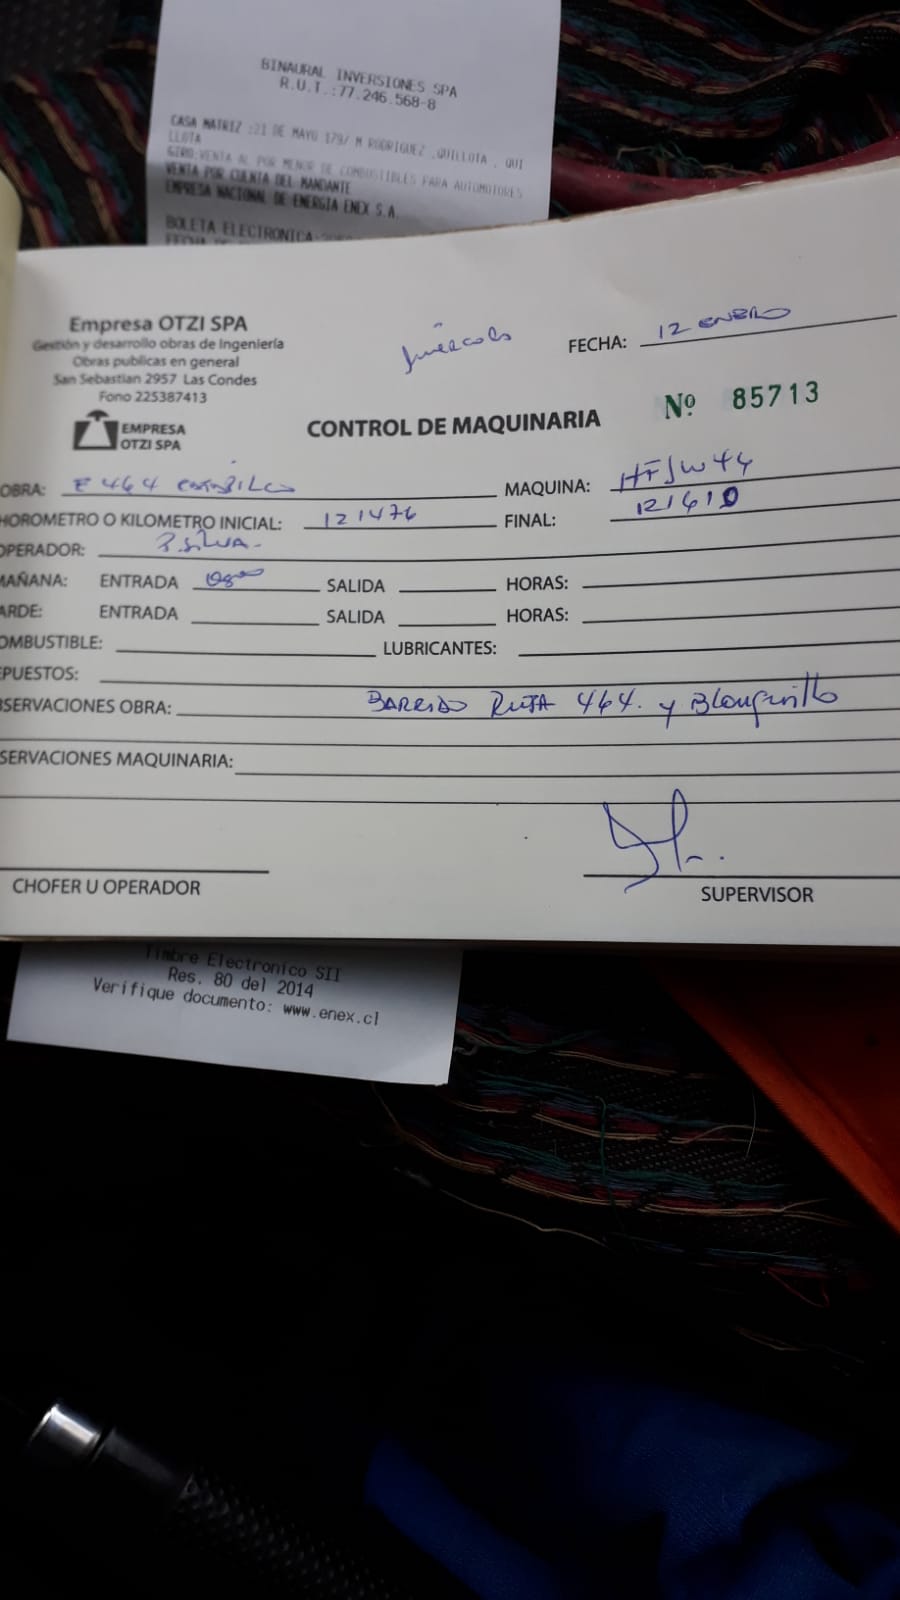 BINAURAL INVERSIONES SPA
R.U.T.:77.246.568-8
CASA MATRIZ :21 DE MAYO 179/ M RODRIGUEZ ,QUILLOTA , QUI
LLOTA
GIRO:VENTA AL POR MENOR DE COMBUSTIBLES PARA AUTOMOTORES
VENTA POR CUENTA DEL MANDANTE
EMPRESA NACIONAL DE ENERGIA ENEX S.A.
BOLETA ELECTRONICA
Empresa OTZI SPA
Gestión y desarrollo obras de Ingeniería
Obras publicas en general
San Sebastian 2957 Las Condes
Fono 225387413
EMPRESA
OTZI SPA
FECHA: 12 ENERO
Nº 85713
CONTROL DE MAQUINARIA
OBRA: E 464
MAQUINA: HFJW44
HOROMETRO O KILOMETRO INICIAL: 121476
FINAL: 121610
OPERADOR: P.SILVA.
MAÑANA: ENTRADA 0800 SALIDA HORAS:
ARDE: ENTRADA SALIDA HORAS:
OMBUSTIBLE: LUBRICANTES:
EPUESTOS:
BSERVACIONES OBRA: BARRIDO RUTA 464. y Blanquillo
SERVACIONES MAQUINARIA:
CHOFER U OPERADOR
SUPERVISOR
Timbre Electronico SII
Res. 80 del 2014
Verifique documento: www.enex.cl